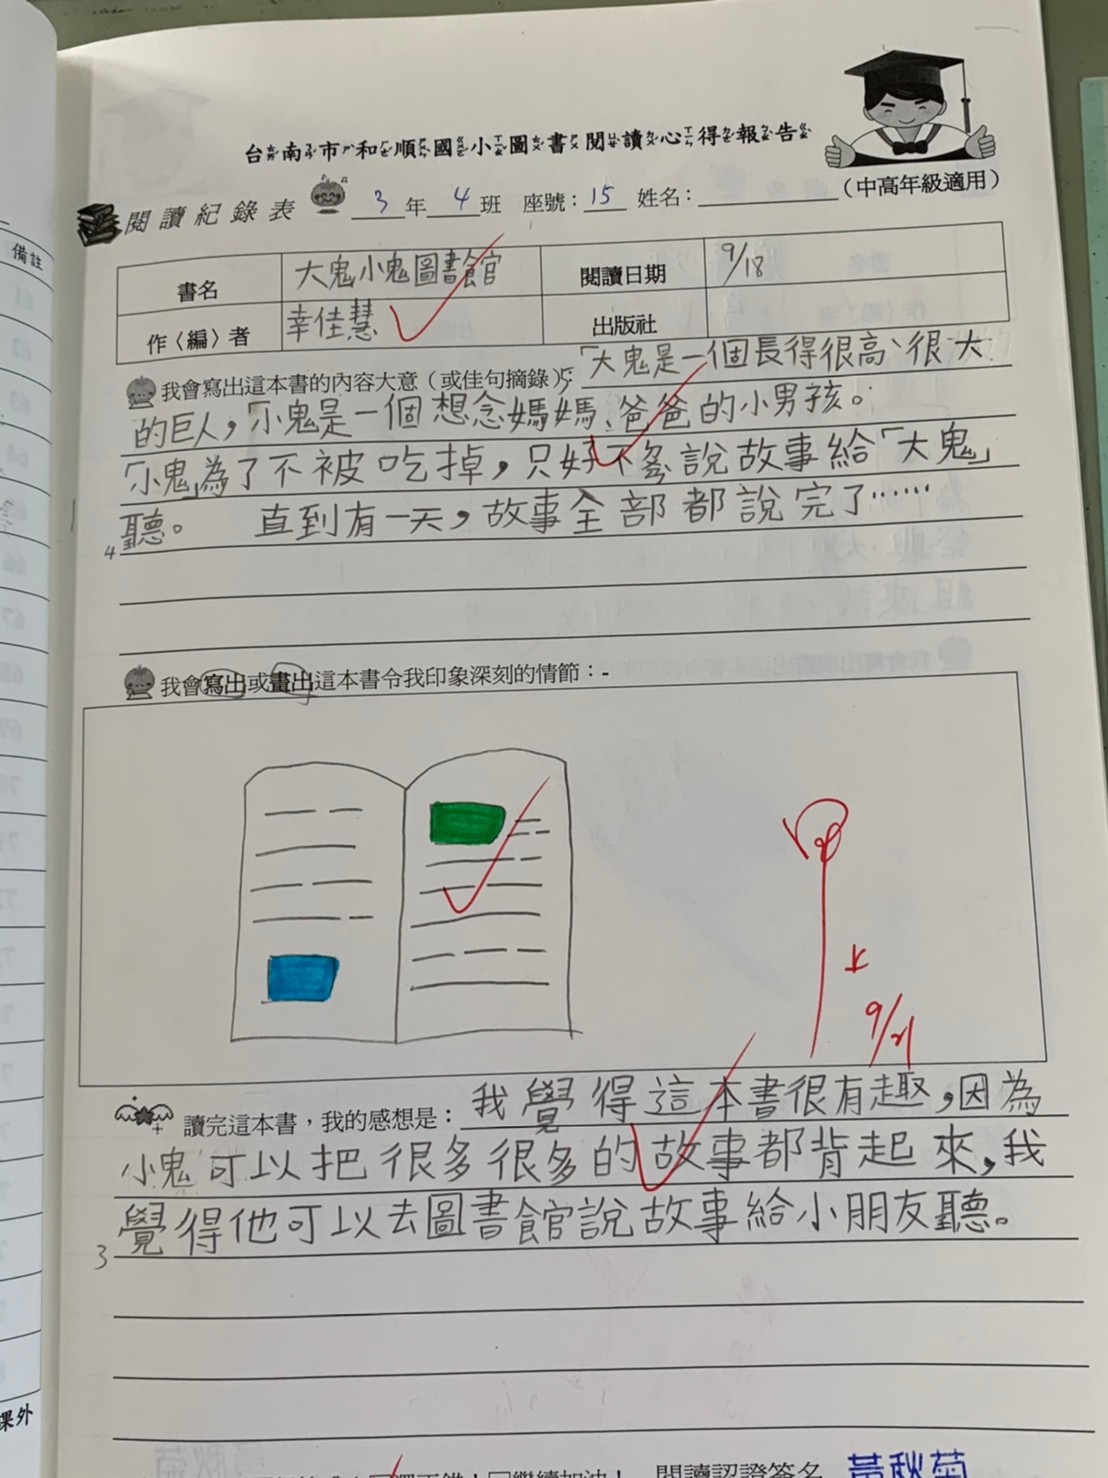 台南市和順國小圖書閱讀心得報告
(中高年級適用)
閱讀紀錄表 3年4班 座號：15 姓名：
書名 大鬼小鬼圖書館 閱讀日期 9/18
作〈編〉者 幸佳慧 出版社
我會寫出這本書的內容大意（或佳句摘錄）： 「大鬼是一個長得很高、很大
的巨人，「小鬼是一個想念媽媽、爸爸的小男孩。
「小鬼」為了不被吃掉，只好不多說故事給「大鬼」
聽。 直到有一天，故事全部都說完了……
4
我會寫出或畫出這本書令我印象深刻的情節：-
9/21
讀完這本書，我的感想是： 我覺得這本書很有趣，因為
小鬼可以把很多很多的故事都背起來，我
覺得他可以去圖書館說故事給小朋友聽。
3
繼續加油！ 閱讀認證簽名 黃秋菊
備註
67
68
69
課外